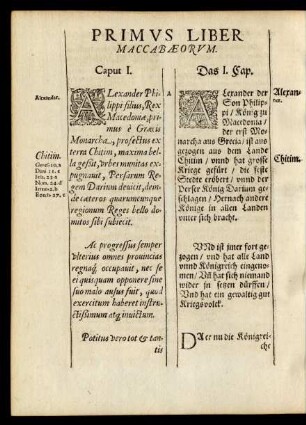 PRIMVS LIBER
MACCABÆORVM.
Caput I.
Alexander.
ALexander Phi-
lippi filius, Rex
Macedoniæ, pri-
mus è Græcis
Monarcha, profectus ex
Chitim.
terra Chitim, maxima bel-
la geſſit, vrbes munitas ex-
pugnauit, Perſarum Re-
gem Darium deuicit, dein-
de cæteros quarumcunque
regionum Reges bello do-
mitos ſibi ſubiecit.
Ac progreſſus ſemper
vlterius omnes prouincias
regnaq́; occupauit, nec ſe
ei quiſquam opponere ſine
ſuo malo auſus fuit, quod
exercitum haberet inſtru-
ctiſsimum atq; inuictum.
Potitus vero tot & tan-
tis
Das I. Cap.
A
Alexan-
ALexander der
Son Philip-
pi / König zu
Macedonia /
der erſt Mo-
narcha aus Grecia / iſt aus-
gezogen aus dem Lande
Chitim.
Chitim / vnnd hat groſſe
Kriege gefürt / die feſte
Stedte eröbert / vnnd der
Perſer König Darium ge-
ſchlagen / Hernach andere
Könige in allen Landen
vnter ſich bracht.
VNd iſt jmer fort ge-
zogen / vnd hat alle Land
vnnd Königreich eingenom-
men / Vñ hat ſich niemand
wider jn ſetzen dürffen /
Vnd hat ein gewaltig gut
Kriegsvolck.
DAer nu die Königrei-
che